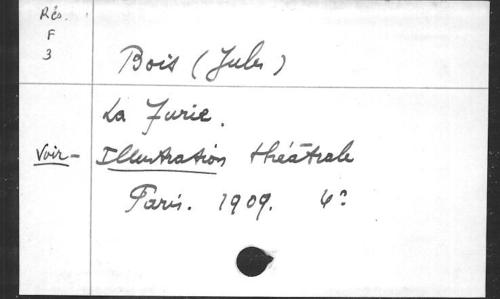 Rés.
F
3
Bois (Jules)
La Furie.
Voir - Illustration théâtrale
Paris. 1909. 4°